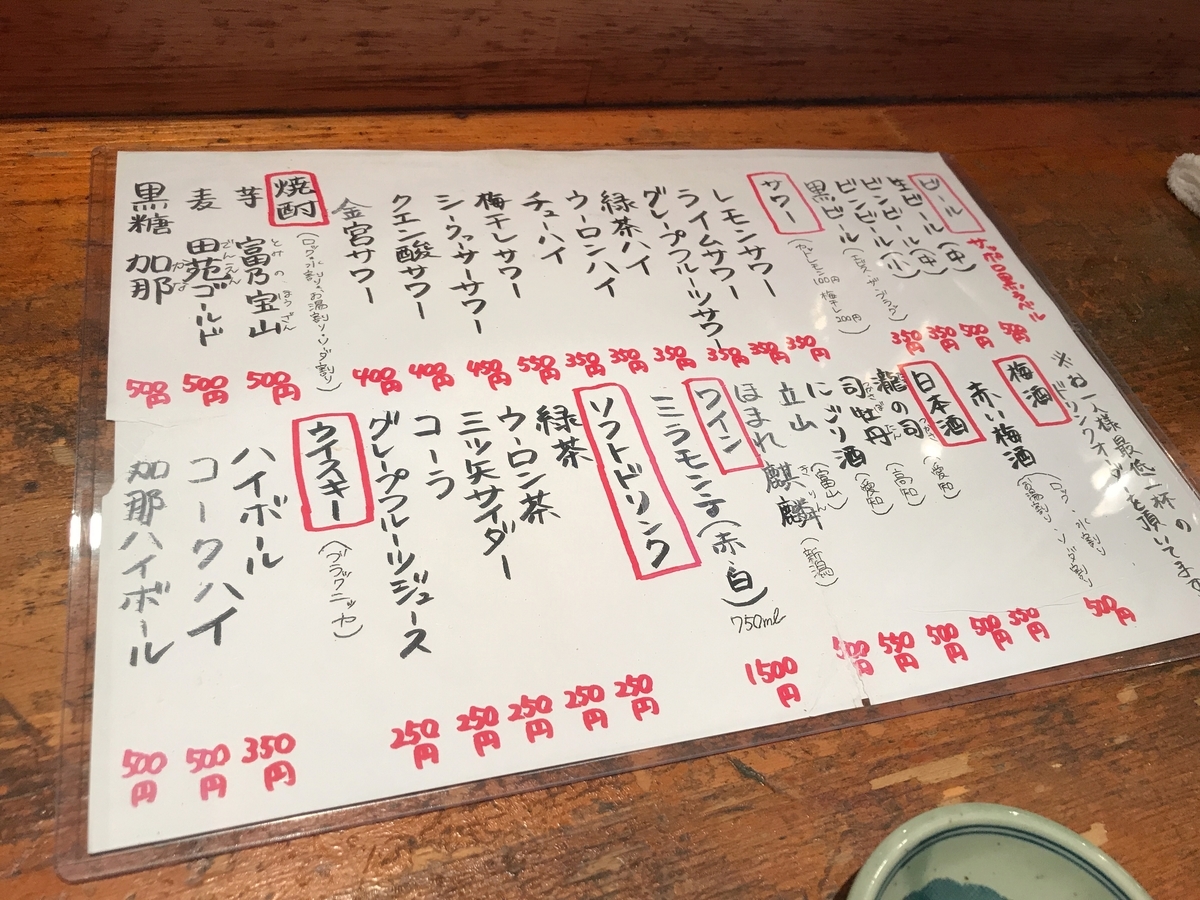 ビール
サッポロ黒ラベル
生ビール(中) 500円
ビンビール(中) 500円
ビンビール(小) 350円
黒ビール (ヱビス・ザ・ブラック) 350円
サワー
(カットレモン100円 梅干し200円)
レモンサワー 350円
ライムサワー 350円
グレープフルーツサワー 350円
緑茶ハイ 350円
ウーロンハイ 350円
チューハイ 350円
梅干しサワー 550円
シークァーサーサワー 450円
クエン酸サワー 400円
金宮サワー 400円
焼酎
(ロック・水割り・お湯割り・ソーダ割り)
芋 富乃宝山 とみのほうざん 500円
麦 田苑ゴールド でんえん 500円
黒糖 加那 かな 500円
※お一人様最低一杯の
ドリンクオーダーを頂いてます
梅酒
(ロック・水割り
お湯割り・ソーダ割り)
赤い梅酒 500円
日本酒
龍の司 (愛知) 350円
司牡丹 (高知) 500円
にごり酒 (愛知) 500円
立山 (富山) 550円
ほまれ麒麟 きりん (新潟) 500円
ワイン
ミラモンテ(赤・白) 750ml 1500円
ソフトドリンク
緑茶 250円
ウーロン茶 250円
三ツ矢サイダー 250円
コーラ 250円
グレープフルーツジュース 250円
ウイスキー
(ブラックニッカ)
ハイボール 350円
コークハイ 500円
加那ハイボール 500円